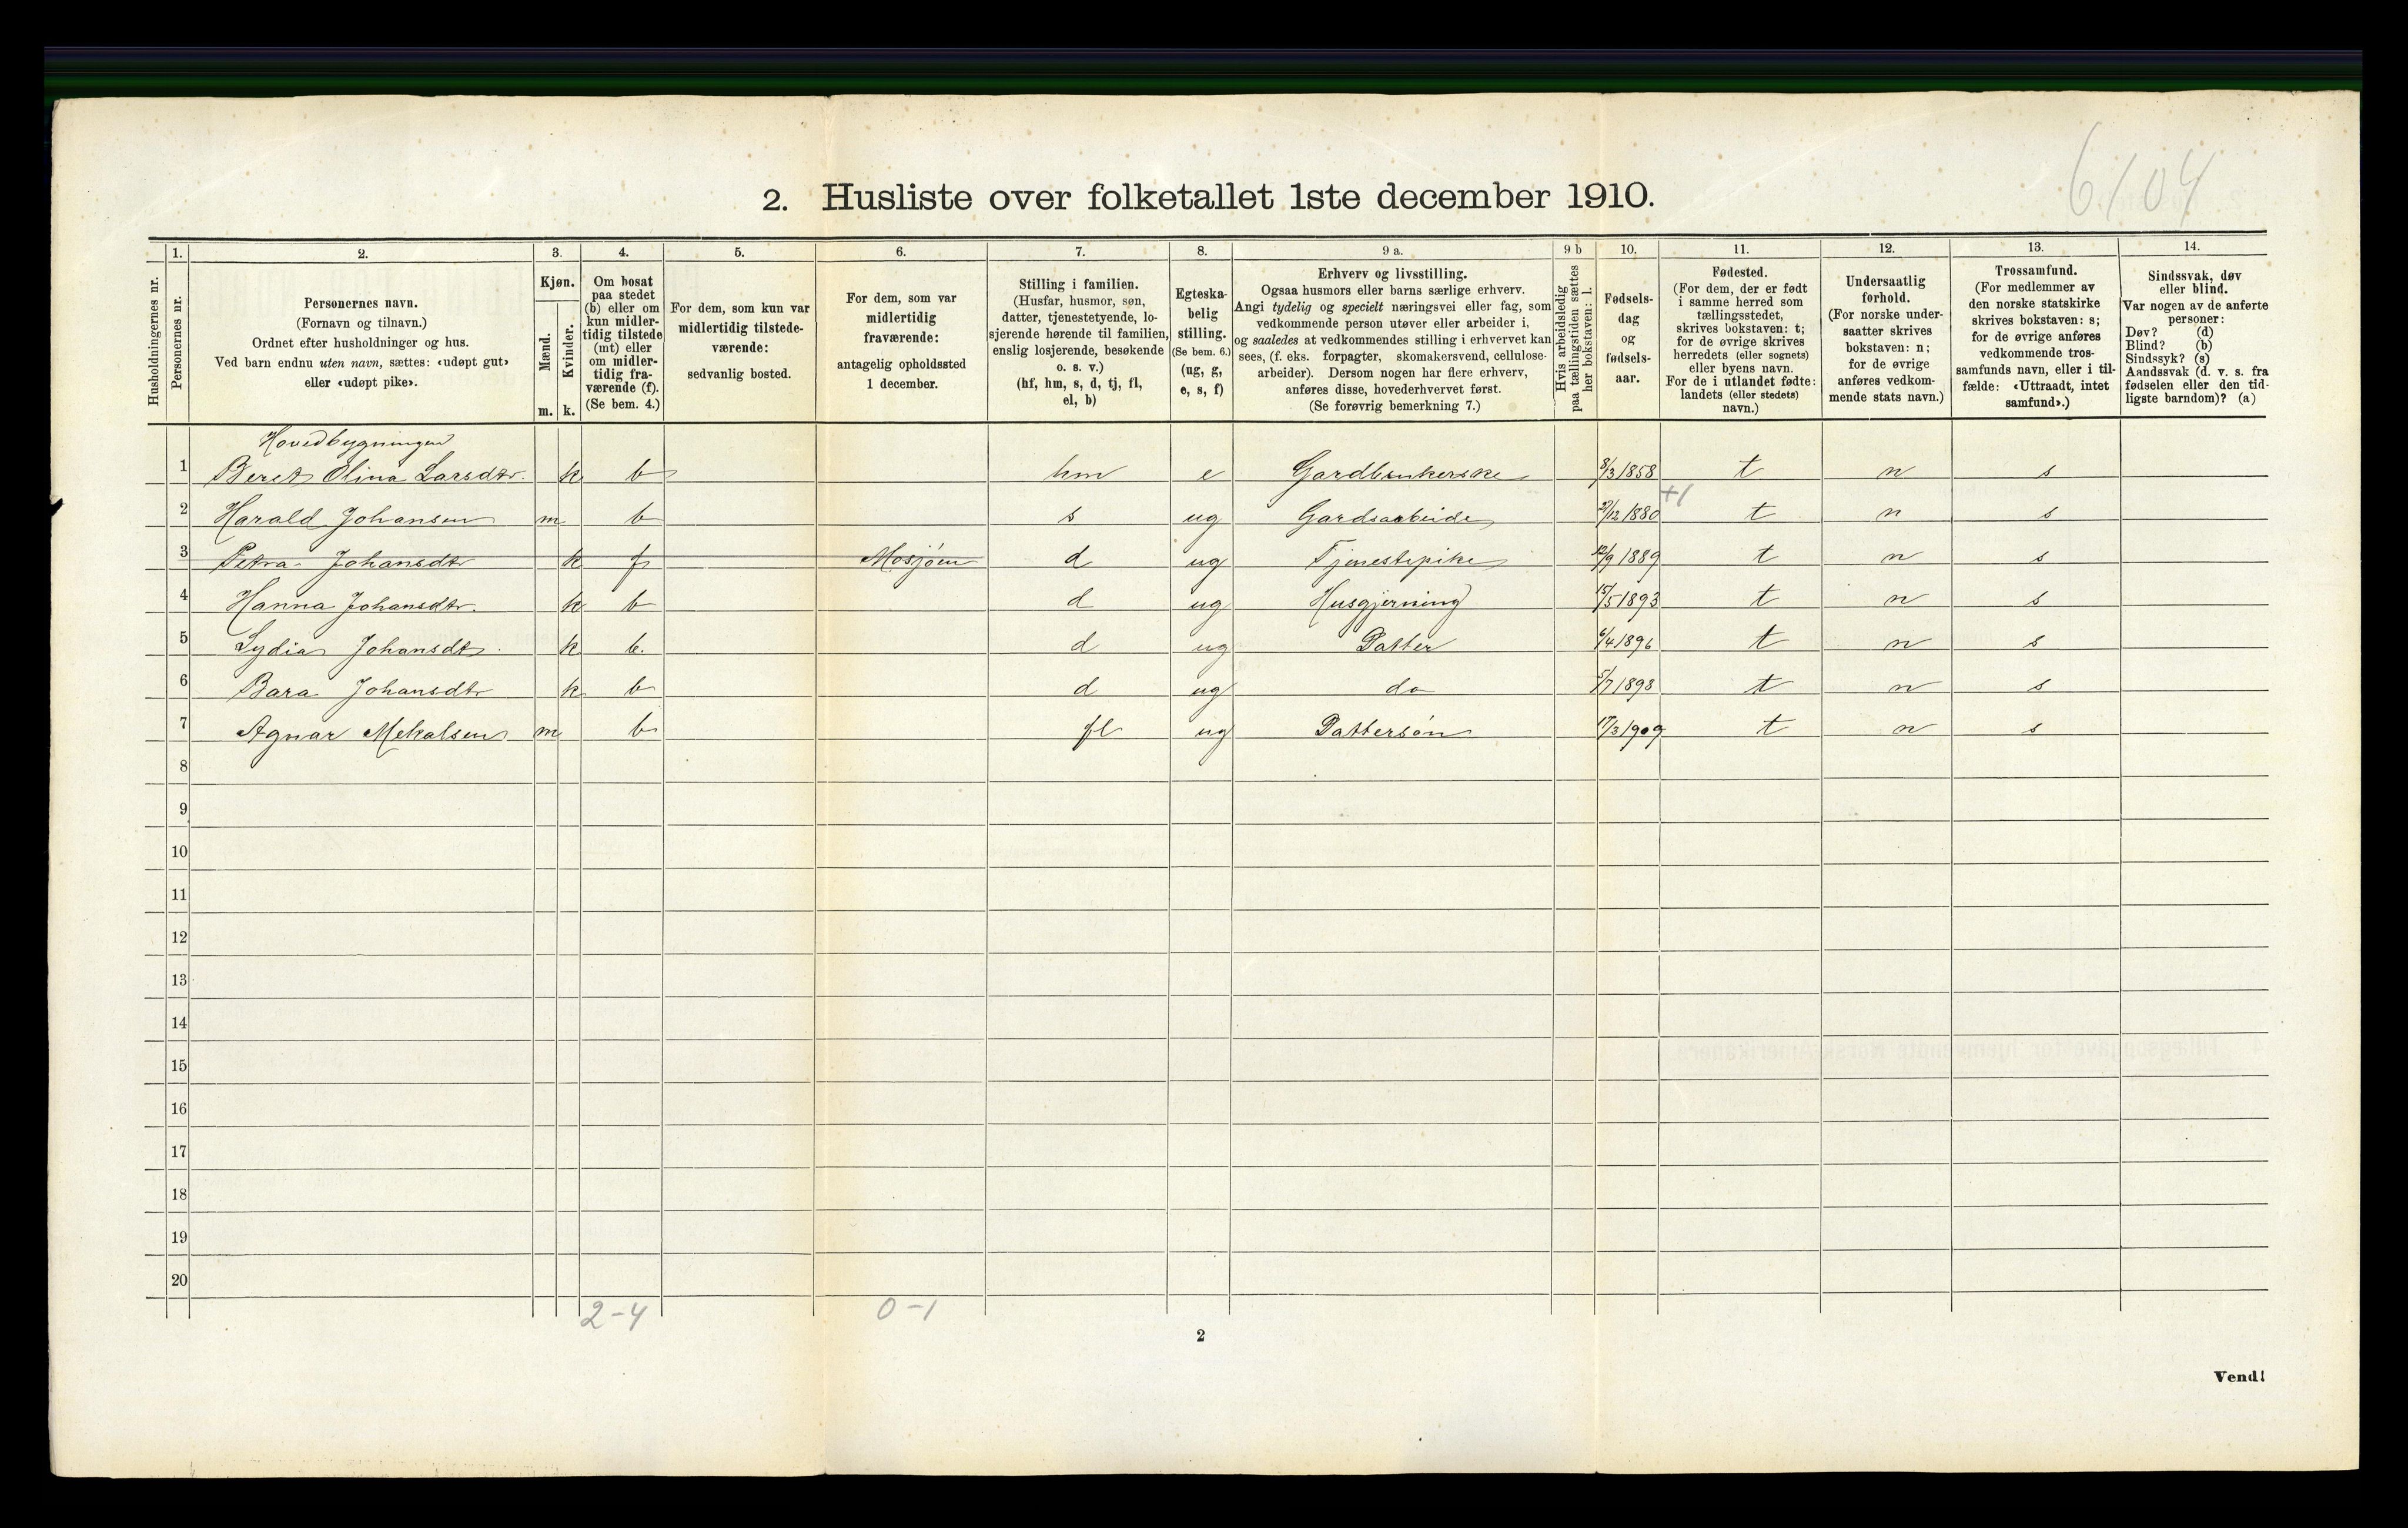 6104
2. Husliste over folketallet 1ste december 1910.
Husholdningernes nr.
1. Personernes nr.
2. Personernes navn.
(Fornavn og tilnavn.)
Ordnet efter husholdninger og hus.
Ved barn endnu uten navn, sættes: «udøpt gut»
eller «udøpt pike».
3. Kjøn.
Mænd. m.
Kvinder. k.
4. Om bosat
paa stedet
(b) eller om
kun midler-
tidig tilstede
(mt) eller
om midler-
tidig fra-
værende (f).
(Se bem. 4.)
5. For dem, som kun var
midlertidig tilstede-
værende:
sedvanlig bosted.
6. For dem, som var
midlertidig
fraværende:
antagelig opholdssted
1 december.
7. Stilling i familien.
(Husfar, husmor, søn,
datter, tjenestetyende, lo-
sjerende hørende til familien,
enslig losjerende, besøkende
o. s. v.)
(hf, hm, s, d, tj, fl,
el, b)
8. Egteska-
belig
stilling.
(Se bem. 6.)
(ug, g,
e, s, f)
9 a. Erhverv og livsstilling.
Ogsaa husmors eller barns særlige erhverv.
Angi tydelig og specielt næringsvei eller fag, som
vedkommende person utøver eller arbeider i,
og saaledes at vedkommendes stilling i erhvervet kan
sees, (f. eks. forpagter, skomakersvend, cellulose-
arbeider). Dersom nogen har flere erhverv,
anføres disse, hovederhvervet først.
(Se forøvrig bemerkning 7.)
9 b Hvis arbeidsledig
paa tællingstiden sættes
her bokstaven: l.
10. Fødsels-
dag
og
fødsels-
aar.
11. Fødested.
(For dem, der er født
i samme herred som
tællingsstedet,
skrives bokstaven: t;
for de øvrige skrives
herredets (eller sognets)
eller byens navn.
For de i utlandet fødte:
landets (eller stedets)
navn.)
12. Undersaatlig
forhold.
(For norske under-
saatter skrives
bokstaven: n;
for de øvrige
anføres vedkom-
mende stats navn.)
13. Trossamfund.
(For medlemmer av
den norske statskirke
skrives bokstaven: s;
for de øvrige anføres
vedkommende tros-
samfunds navn, eller i til-
fælde: «Uttraadt, intet
samfund».)
14. Sindssvak, døv
eller blind.
Var nogen av de anførte
personer:
Døv? (d)
Blind? (b)
Sindssyk? (s)
Aandssvak (d. v. s. fra
fødselen eller den tid-
ligste barndom)? (a)
Hovedbygningen
1 Beret Olina Larsdtr. k b hm e Gardbrukerske 8/3 1858 t n s
+1
2 Harald Johansen m b s ug Gardsarbeide 1880 t n s
3 Petra Johansdtr k f Mosjøen d ug Tjenestepike 12/9 1889 t n s
4 Hanna Johansdtr. k b d ug Husgjerning 15/5 1893 t n s
5 Lydia Johansdtr. k b. d ug Datter 6/4 1896 t n s
6 Bara Johansdtr k b d ug do 5/7 1898 t n s
7 Agnar Mekalsen m b fl ug Dattersøn 17/3 1909 t n s
8
9
10
11
12
13
14
15
16
17
18
19
20
2-4 0-1
2
Vend!